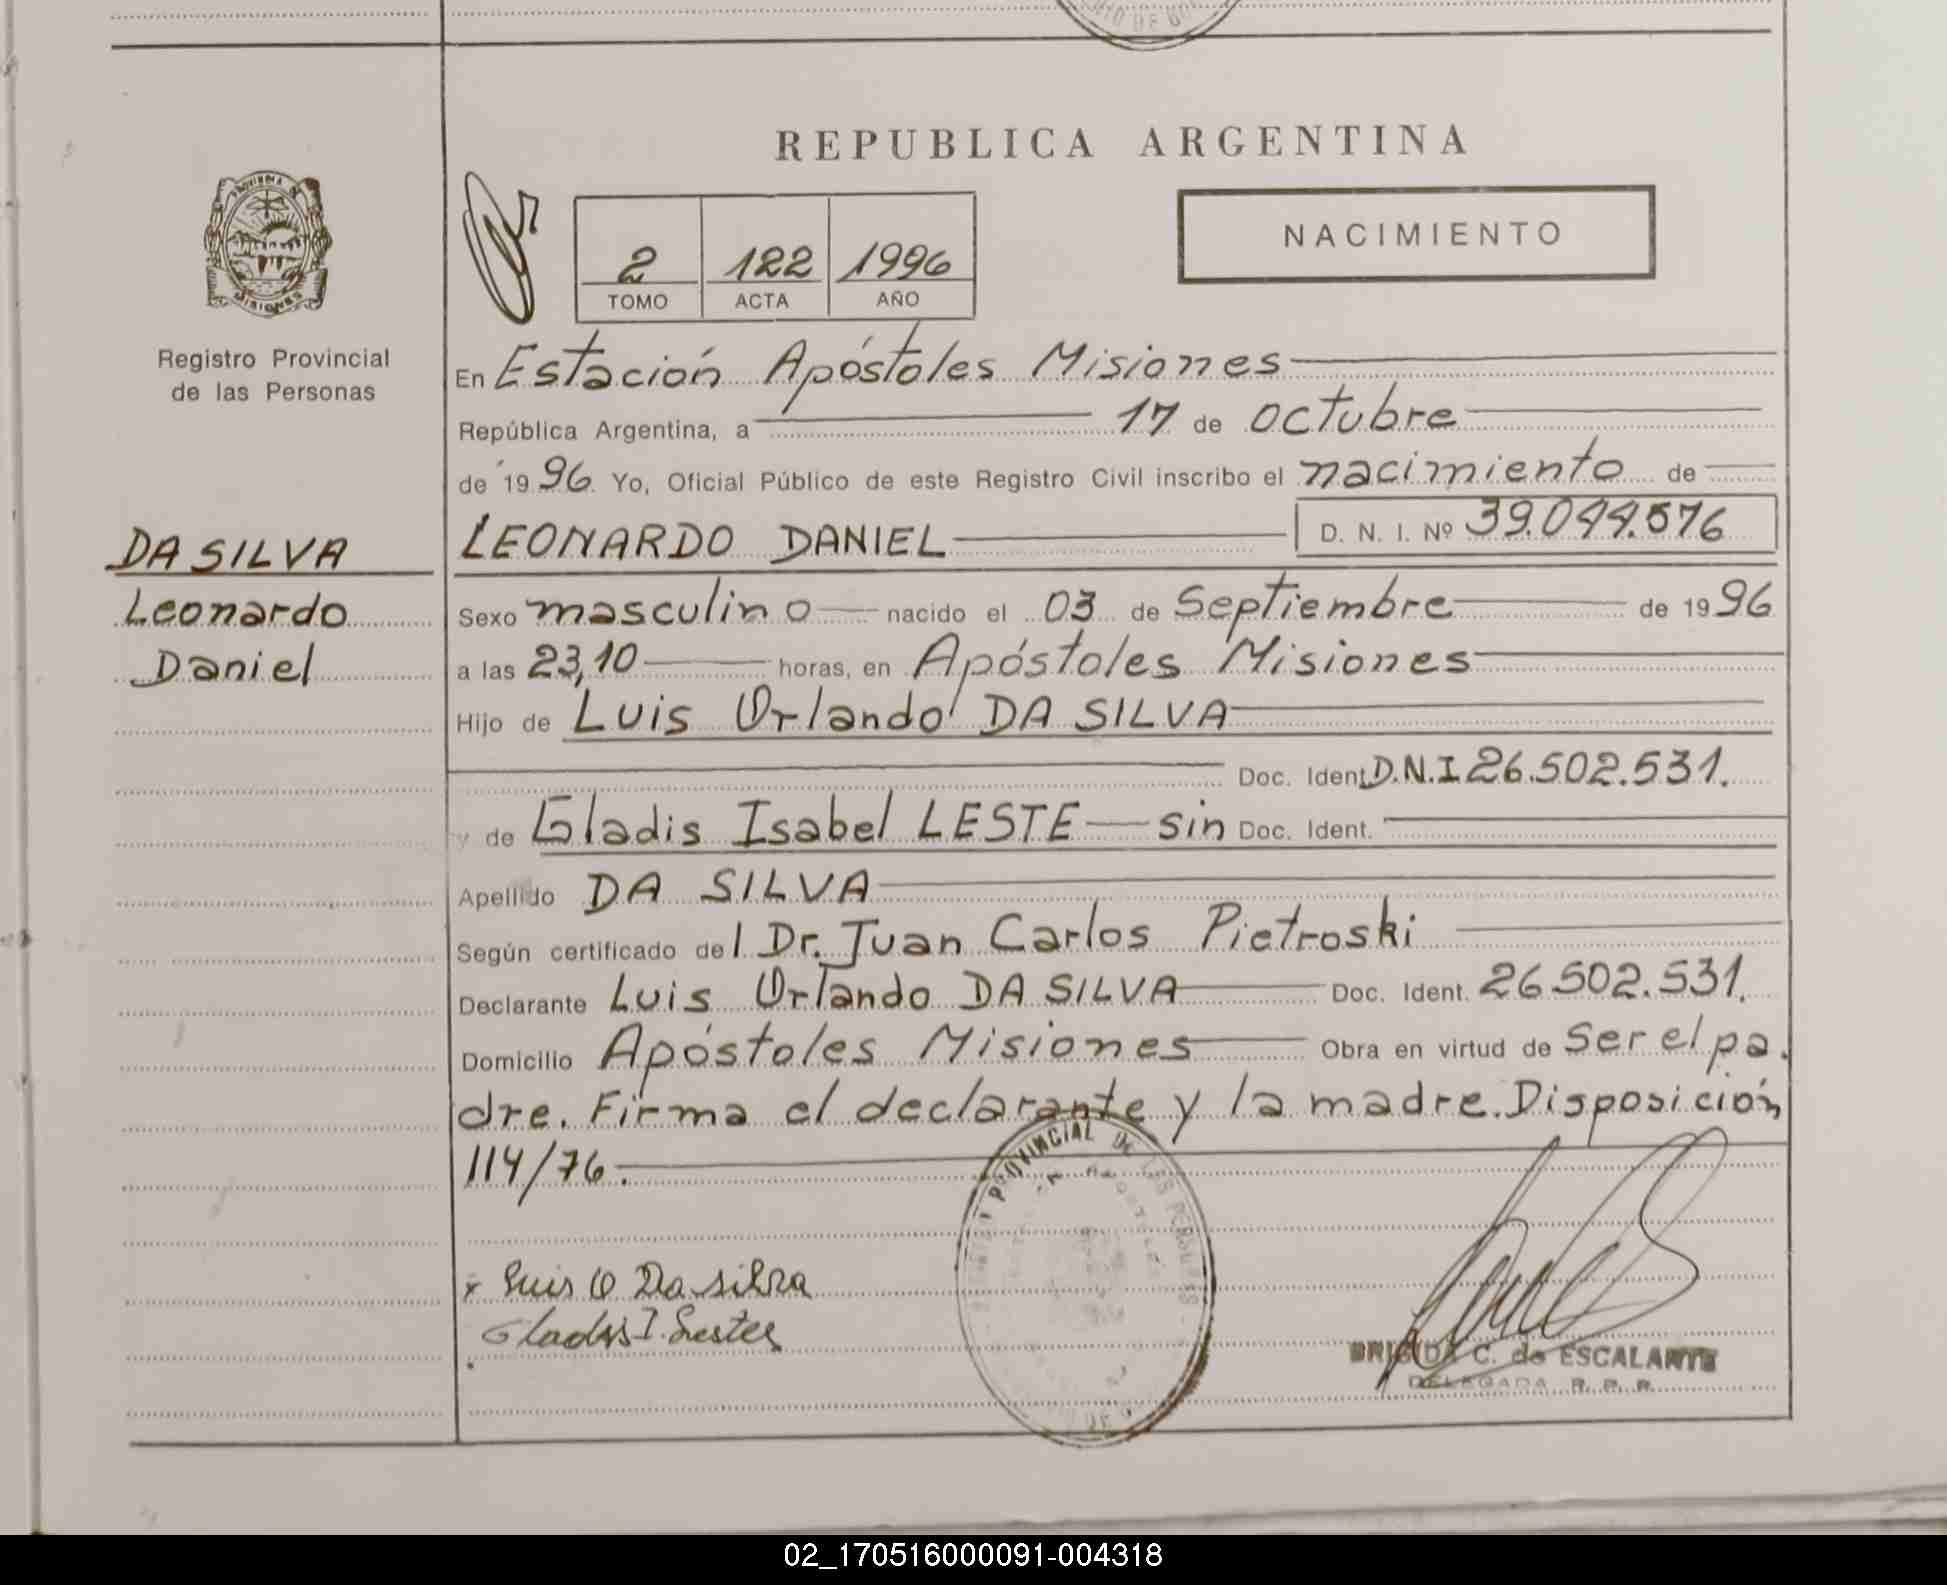 REPUBLICA ARGENTINA
NACIMIENTO
2 122 1996
TOMO ACTA AÑO
Registro Provincial
de las Personas
DA SILVA
Leonardo
Daniel
En Estación Apóstoles Misiones
República Argentina, a 17 de octubre
de 1996. Yo, Oficial Público de este Registro Civil inscribo el nacimiento de
LEONARDO DANIEL D. N. I. Nº 39.044.576
Sexo masculino nacido el 03 de Septiembre de 1996
a las 23,10 horas, en Apóstoles Misiones
Hijo de Luis Orlando DA SILVA
Doc. Ident. D.N.I 26.502.531.
y de Gladis Isabel LESTE sin Doc. Ident.
Apellido DA SILVA
Según certificado del Dr. Juan Carlos Pietroski
Declarante Luis Orlando DA SILVA Doc. Ident. 26.502.531.
Domicilio Apóstoles Misiones Obra en virtud de Ser el pa.
dre. Firma el declarante y la madre. Disposición
114/76.
PROVINCIAL DE LAS PERSONAS
x Luis O Da silva
Gladis I. Lestes
BRIGIDA C. de ESCALANTE
DELEGADA R. P. P.
02_170516000091-004318